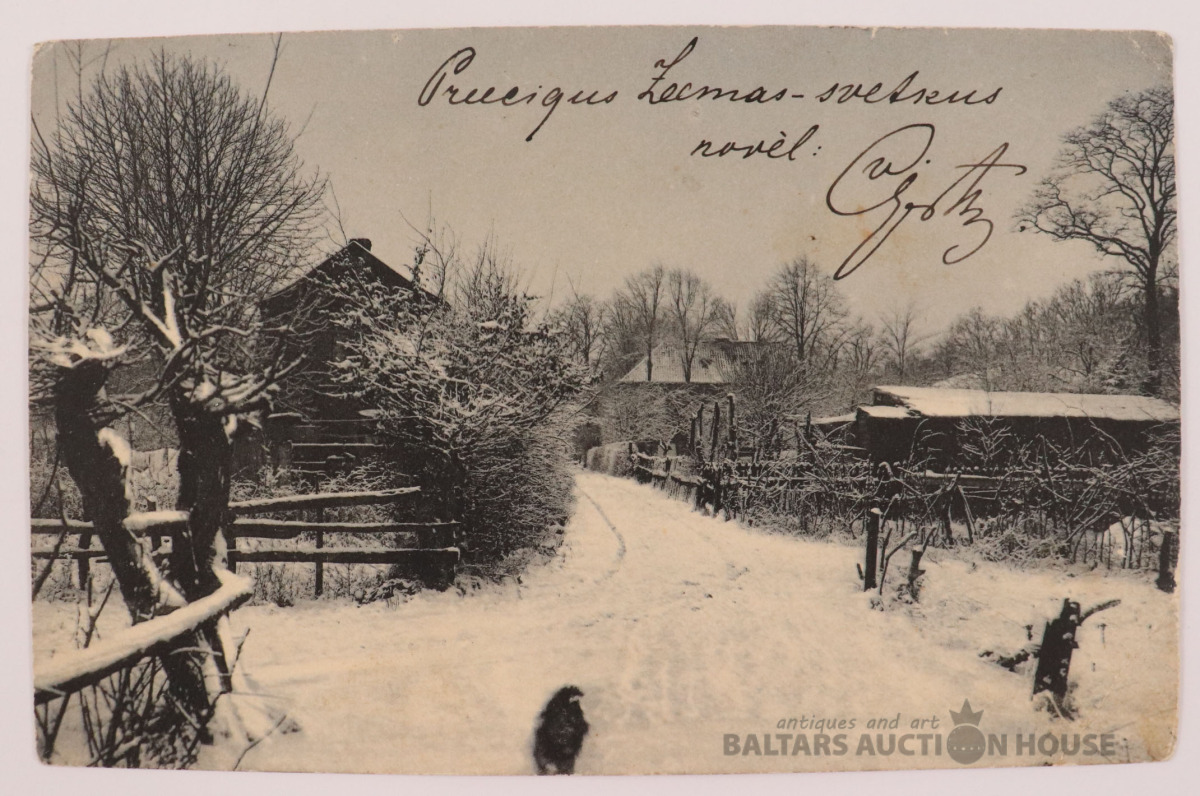 Preecigus Zeemas-svetkus
novēl:
antiques and art
BALTARS AUCTION HOUSE